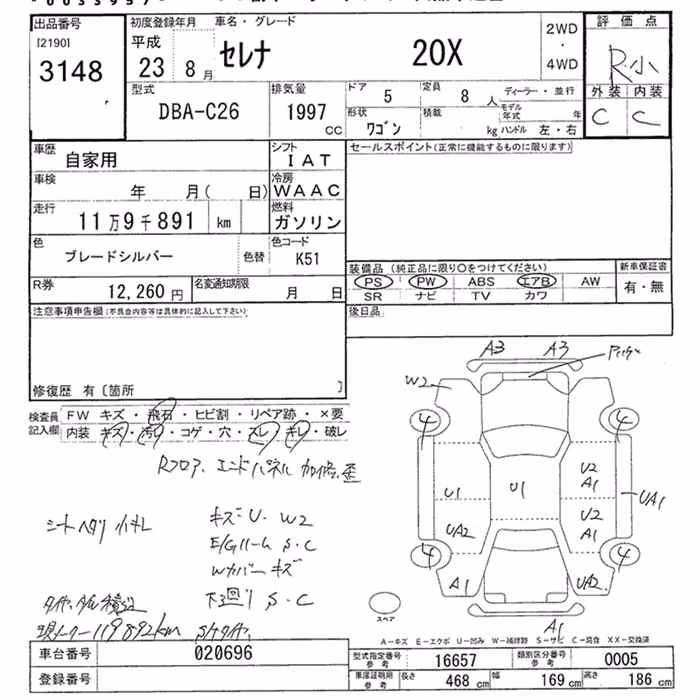 出品番号 初度登録年月 車名・グレード 評価点
I21901 平成 2WD
3148 23 8月 セレナ 20X ・
4WD R・小
型式 排気量 ドア 5 定員 8人 ディーラー・並行 外装 内装
DBA-C26 1997 cc 形状 ワゴン 積載 kg モデル年式 年 ハンドル 左・右 C C
車歴 自家用 シフト IAT セールスポイント(正常に機能するものに限ります)
車検 年 月( 日) 冷房 WAAC
走行 11万9千891 km 燃料 ガソリン
色 ブレードシルバー 色替 色コード K51
装備品(純正品に限り○をつけてください) 新車保証書
PS PW ABS エアB AW 有・無
SR ナビ TV カワ
R券 12,260円 名変通知期限 月 日
後日品
注意事項申告欄(不具合内容等は具体的に記入して下さい)
A3 A3
W2
修復歴 有〔箇所 〕
検査員記入欄 FW キズ・飛石・ヒビ割・リペア跡・×要
内装 キズ・汚レ・コゲ・穴・スレ・キレ・破レ
4 4
Rフロア、エンドパネル 加修、歪
U2
A1
U1 U1 UA1
シートヘタリ キズU・W2 UA2 U2
A1
E/Gルーム S・C
4 4
Wカバーキズ
A1 UA2
下回り S・C
スペア
現メーター119892km
A1
A-キズ E-エクボ U-凹み W-補修跡 S-サビ C-腐食 XX-交換済
車台番号 020696 型式指定番号 参考 16657 類別区分番号 参考 0005
登録番号 車庫証明用 参考 長さ 468 cm 幅 169 cm 高さ 186 cm